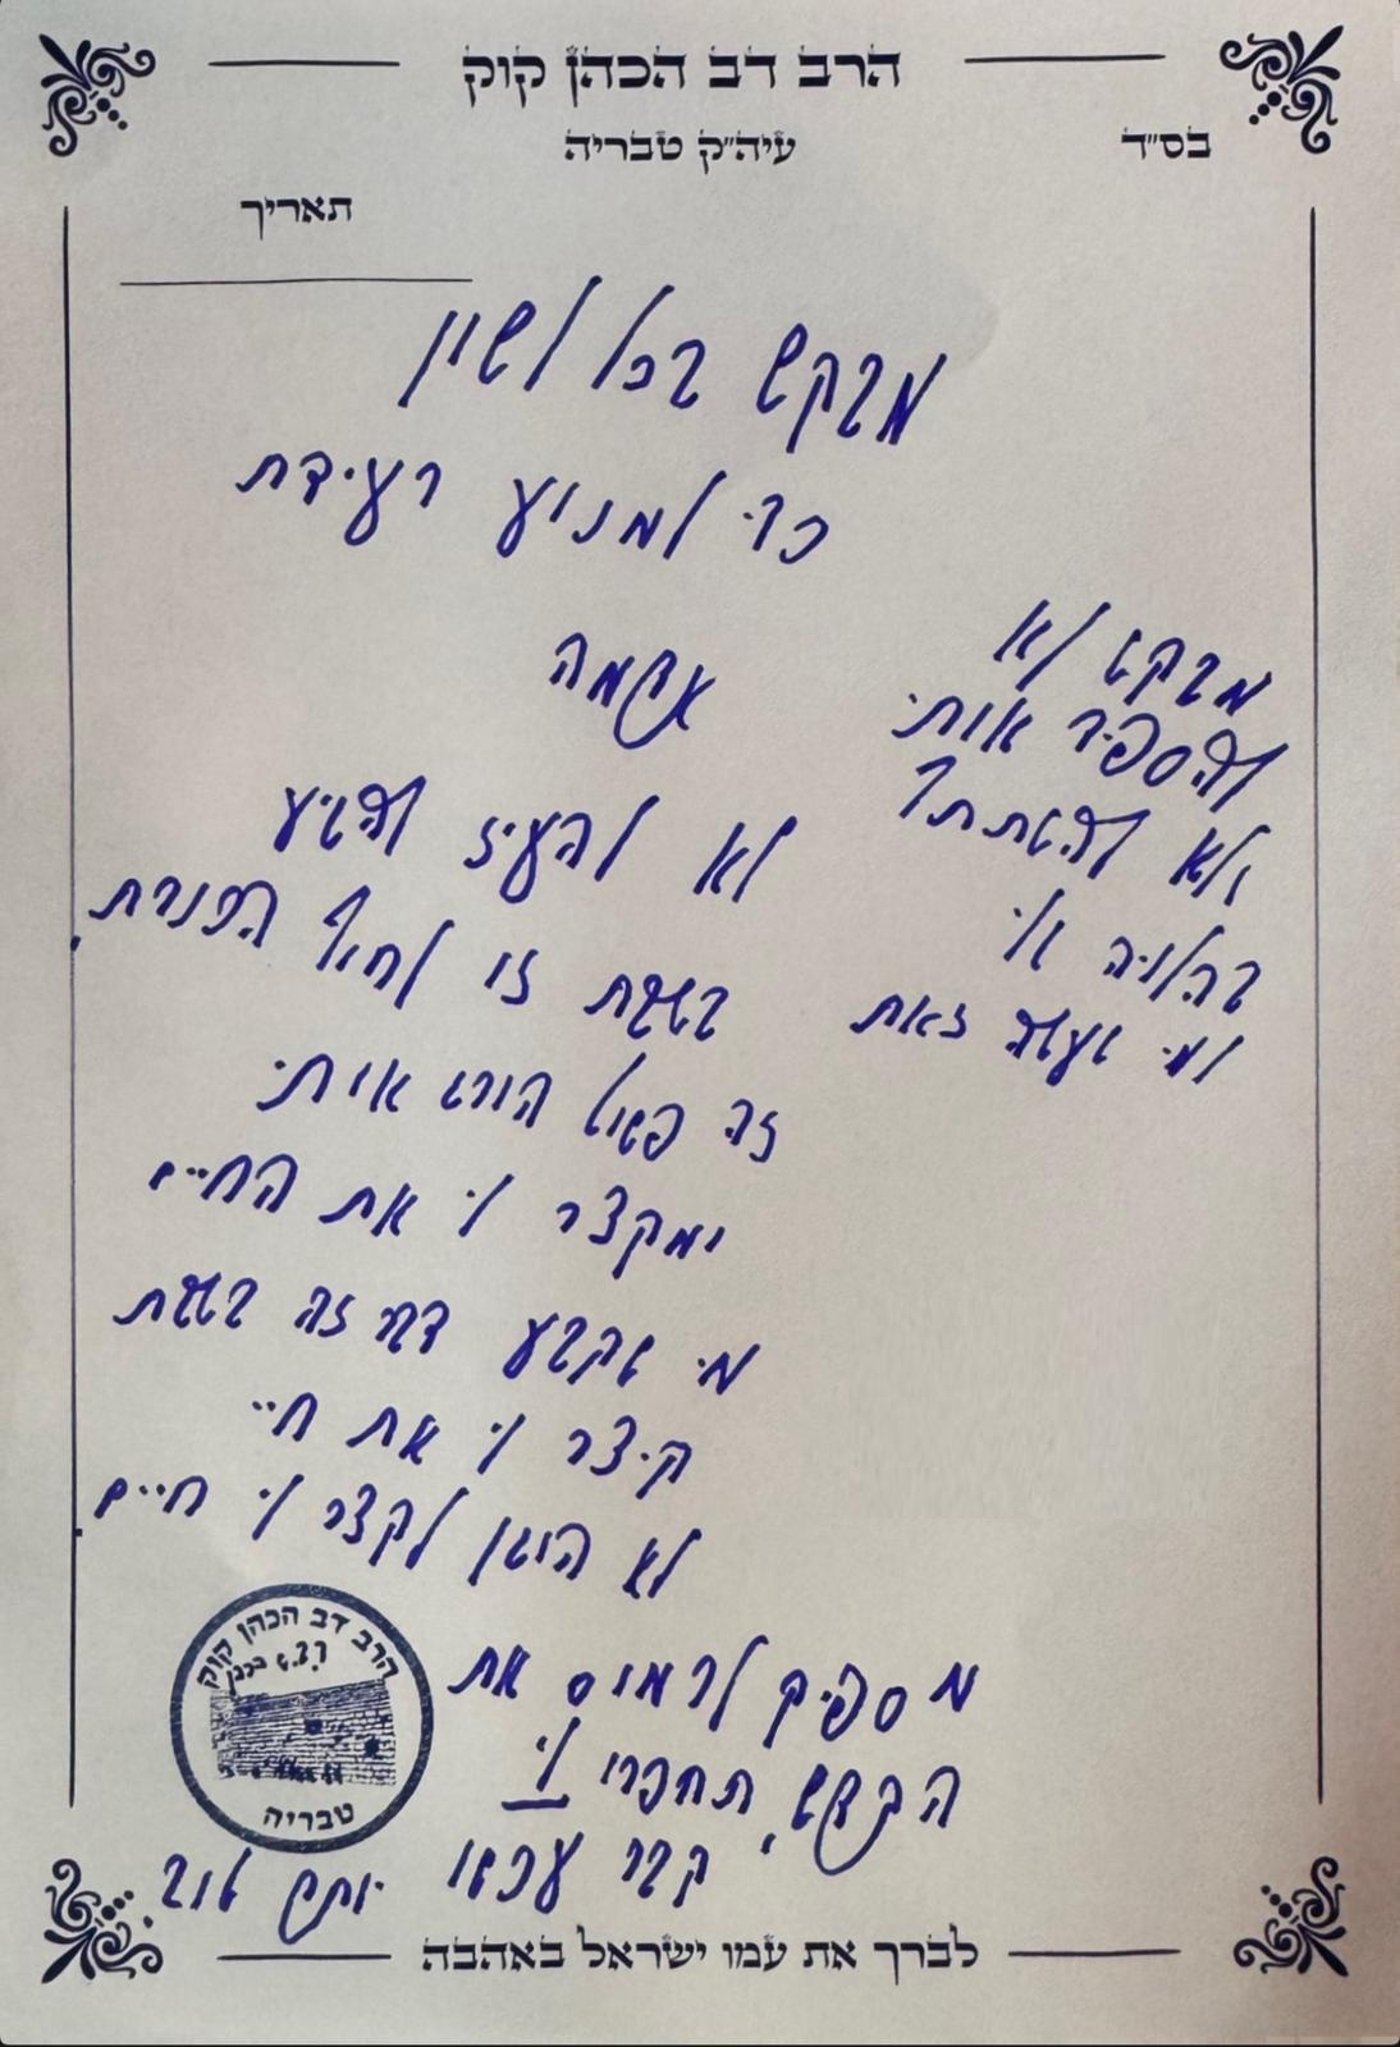 הרב דב הכהן קוק
עיה״ק טבריה
בס״ד
תאריך
מבקש בכל לשון
כדי למנוע רעידת
אדמה
לא להעיז להגיע
בשבת זו לחוף הכנרת
זה פשוט הורג אותי
ומקצר לי את החיים
מי שקבע דבר זה בשבת
קיצר לי את חיי
לא הוגן לקצר לי חיים
מבקש לא
להספיד אותי
ולא להשתתף
בהלויה שלי
למי שעשה זאת
מספיק לרמוס את
הקודש, תחפרו לי
קבר עכשיו יותר טוב.
הרב דב הכהן קוק
טבריה
לברך את עמו ישראל באהבה